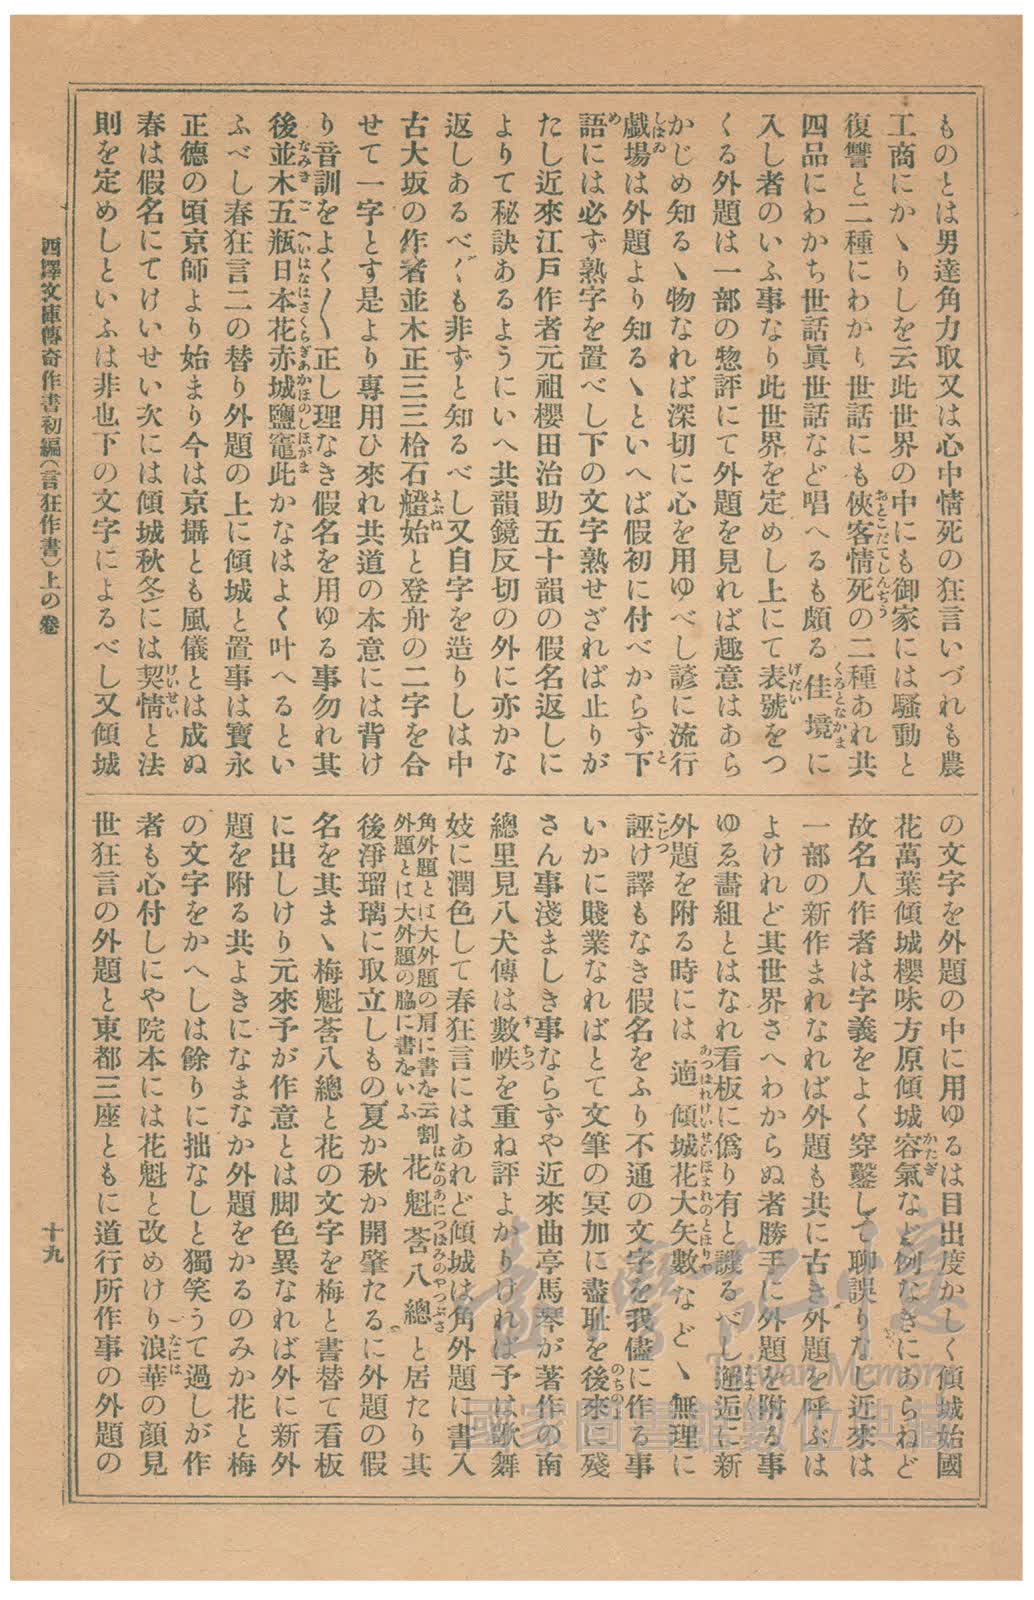 ものとは男達角力取又は心中情死の狂言いづれも農
工商にかゝりしを云此世界の中にも御家には騷動と
復讐と二種にわかり世話にも俠客情死の二種あれ共
四品にわかち世話眞世話など唱へるも頗る佳境に
入し者のいふ事なり此世界を定めし上にて表號をつ
くる外題は一部の惣評にて外題を見れば趣意はあら
かじめ知るゝ物なれば深切に心を用ゆべし諺に流行
戯場は外題より知るゝといへば假初に付べからず下
語には必ず熟字を置べし下の文字熟せざれば止りが
たし近來江戸作者元祖櫻田治助五十韻の假名返しに
よりて秘訣あるようにいへ共韻鏡反切の外に亦かな
返しあるべくも非ずと知るべし又自字を造りしは中
古大坂の作者並木正三三枱石艠始と登舟の二字を合
せて一字とす是より專用ひ來れ共道の本意には背け
り音訓をよく〳〵正し理なき假名を用ゆる事勿れ其
後並木五瓶日本花赤城鹽竈此かなはよく叶へるとい
ふべし春狂言二の替り外題の上に傾城と置事は寶永
正德の頃京師より始まり今は京攝とも風儀とは成ぬ
春は假名にてけいせい次には傾城秋冬には契情と法
則を定めしといふは非也下の文字によるべし又傾城
の文字を外題の中に用ゆるは目出度かしく傾城始國
花萬葉傾城櫻味方原傾城容氣など例なきにあらねど
故名人作者は字義をよく穿鑿して聊誤りなし近來は
一部の新作まれなれば外題も共に古き外題を呼ぶは
よけれど其世界さへわからぬ者勝手に外題を附る事
ゆゑ畵組とはなれ看板に僞り有と譏るべし邂逅に新
外題を附る時には適傾城花大矢數などゝ無理に
誣け譯もなき假名をふり不通の文字を我儘に作る事
いかに賤業なればとて文筆の冥加に盡恥を後來に殘
さん事淺ましき事ならずや近來曲亭馬琴が著作の南
總里見八犬傳は數帙を重ね評よかりければ予は歌舞
妓に潤色して春狂言にはあれど傾城は角外題に書入
角外題とは大外題の肩に書を云割
外題とは大外題の脇に書をいふ
花魁莟八總と居たり其
後淨瑠璃に取立しもの夏か秋か開肇たるに外題の假
名を其まゝ梅魁莟八總と花の文字を梅と書替て看板
に出しけり元來予が作意とは脚色異なれば外に新外
題を附る共よきになまなか外題をかるのみか花と梅
の文字をかへしは餘りに拙なしと獨笑うて過しが作
者も心付しにや院本には花魁と改めけり浪華の顏見
世狂言の外題と東都三座ともに道行所作事の外題の
西澤文庫傳奇作書初編(言狂作書)上の卷
十九
臺灣記憶
Taiwan Memory
國家圖書館數位典藏